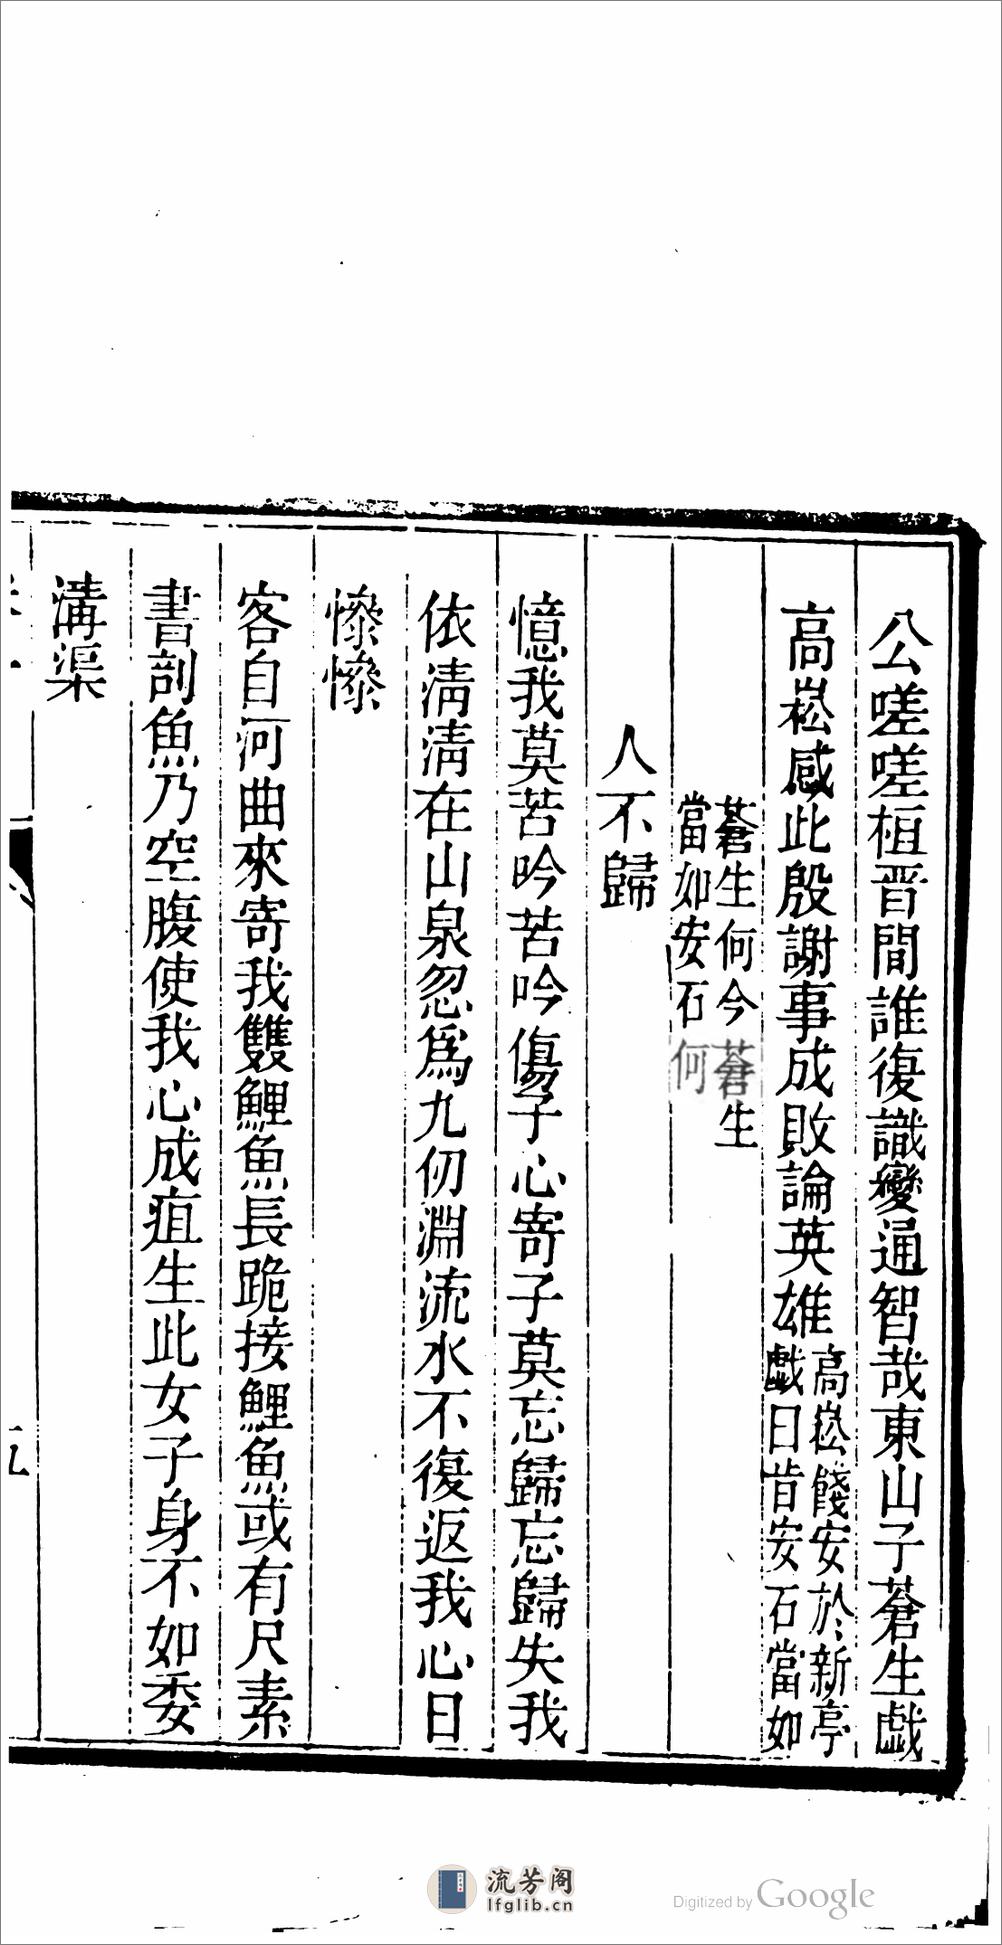 公嗟嗟桓晋間誰復識變通智哉東山子蒼生戯
高崧感此殷謝事成敗論英雄高崧餞安於新亭
戯曰昔安石當如
蒼生何今蒼生
當如安石何
人不歸
憶我莫苦吟苦吟傷子心寄子莫忘歸忘歸失我
依淸淸在山泉忽爲九仞淵流水不復返我心日
慘慘
客自河曲來寄我雙鯉魚長跪接鯉魚或有尺素
書剖魚乃空腹使我心成疽生此女子身不如委
溝渠
五
流芳阁
lfglib.cn
Digitized by Google